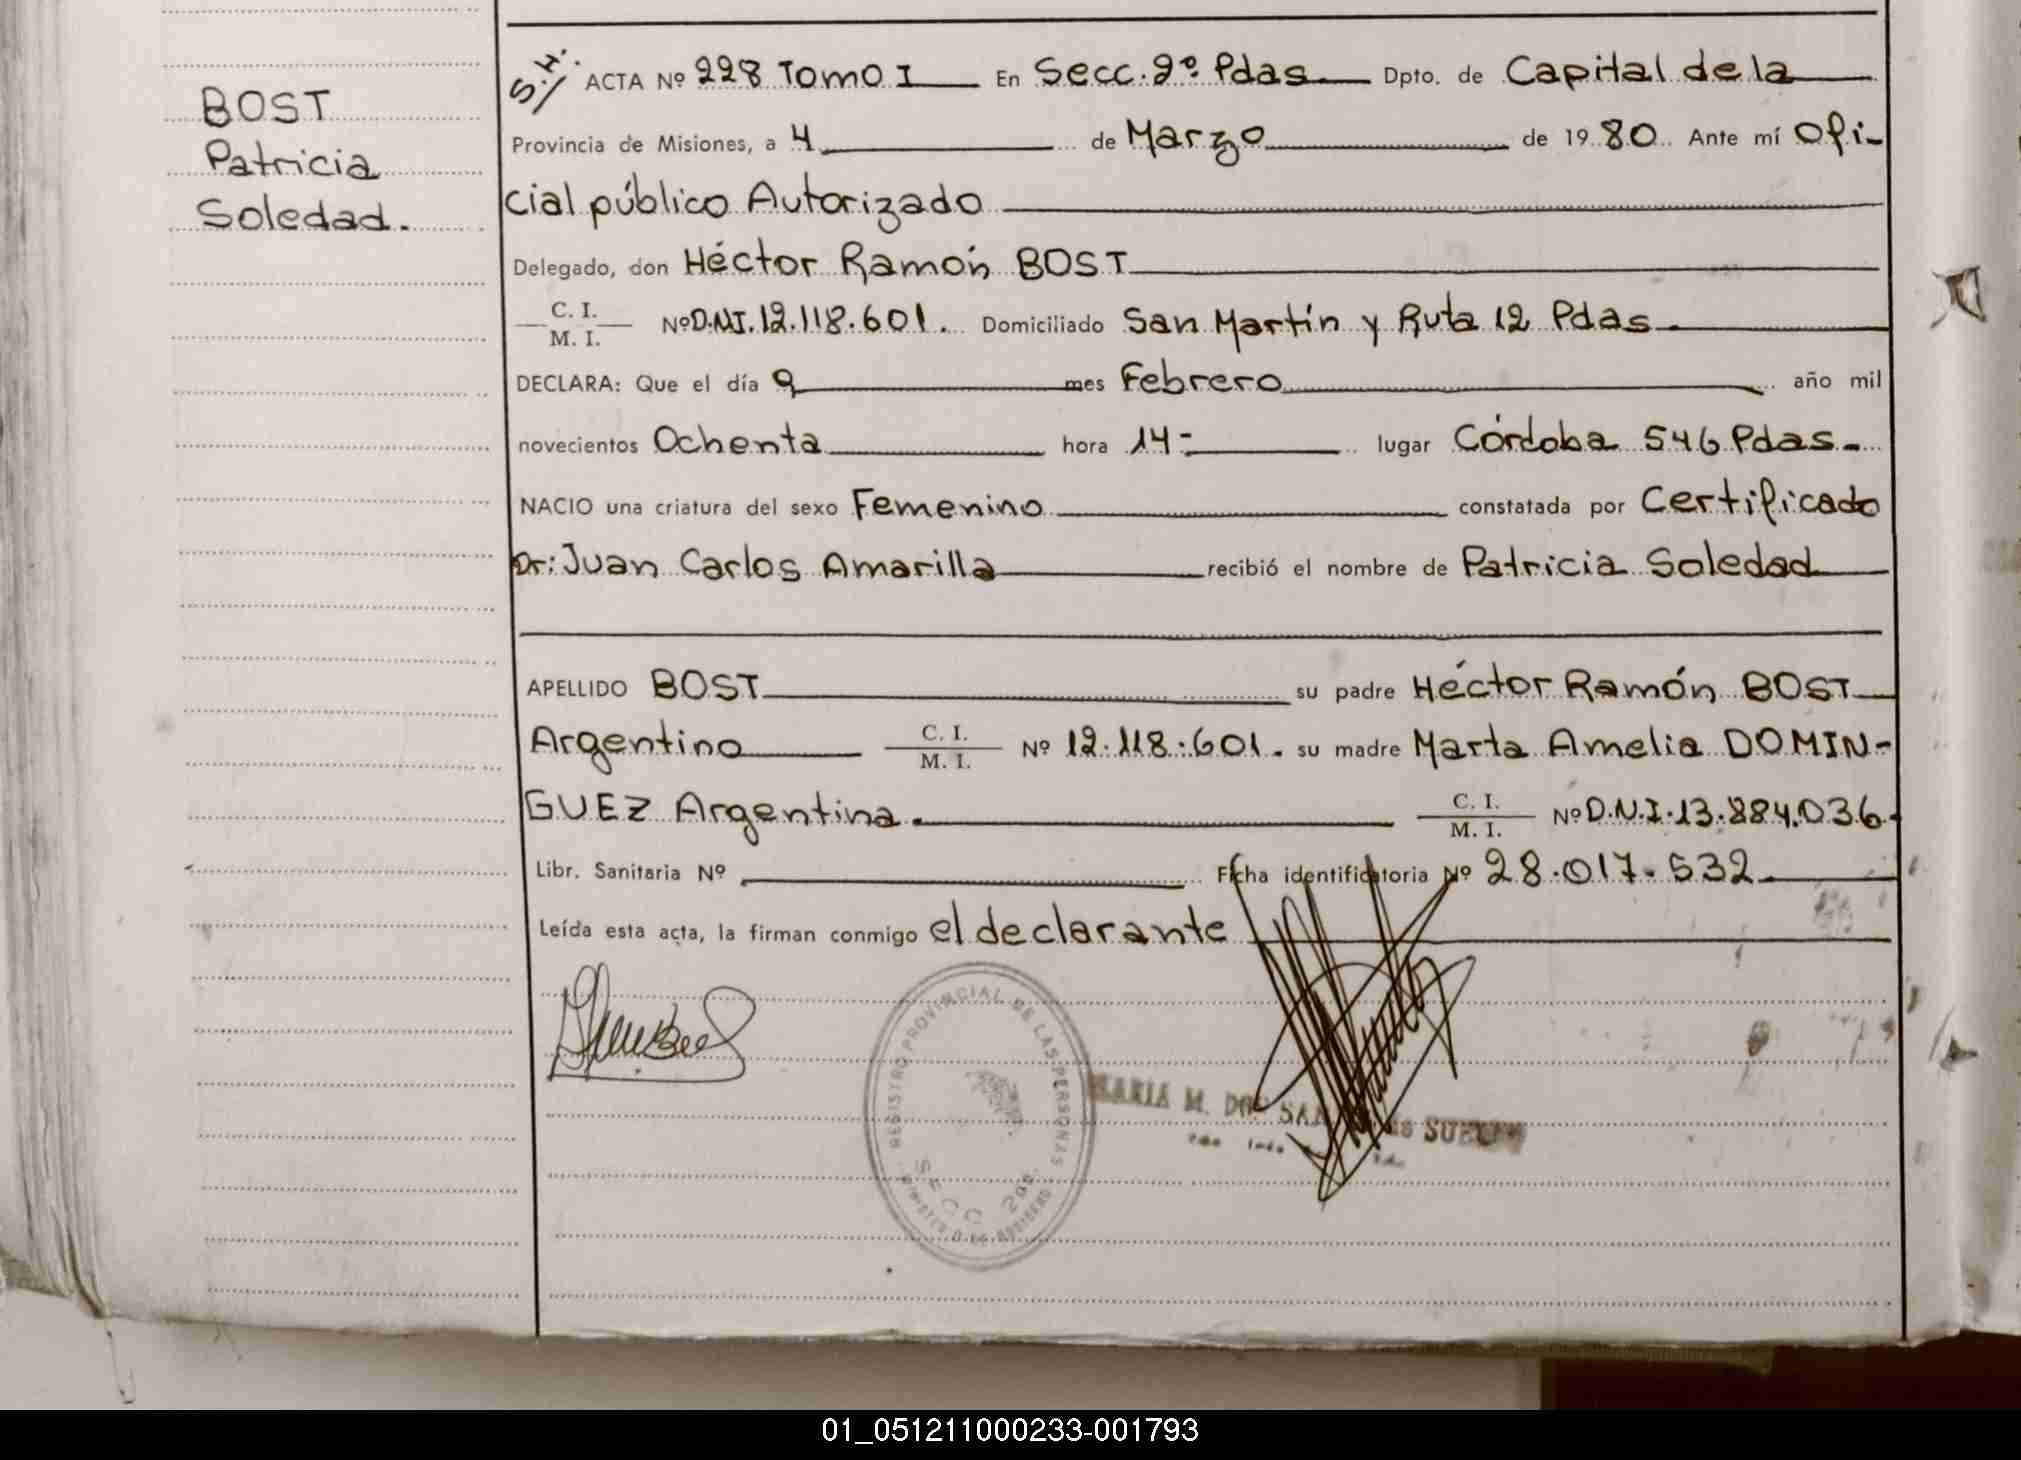 BOST
Patricia
Soledad.
S.H. ACTA Nº 228 Tomo I En Secc. 2º Pdas Dpto. de Capital de la
Provincia de Misiones, a 4 de Marzo de 1980 Ante mí Ofi-
cial público Autorizado
Delegado, don Héctor Ramón BOST
C. I.
M. I. Nº D.N.I. 12.118.601. Domiciliado San Martín y Ruta 12 Pdas.
DECLARA: Que el día 9 mes Febrero año mil
novecientos Ochenta hora 14- lugar Córdoba 546 Pdas.
NACIO una criatura del sexo Femenino constatada por Certificado
Dr: Juan Carlos Amarilla recibió el nombre de Patricia Soledad
APELLIDO BOST su padre Héctor Ramón BOST
Argentino C. I. M. I. Nº 12.118.601. su madre Marta Amelia DOMIN-
GUEZ Argentina. C. I. M. I. Nº D.N.I. 13.884.036.
Libr. Sanitaria Nº Ficha identificatoria Nº 28.017.532
Leída esta acta, la firman conmigo el declarante
REGISTRO PROVINCIAL DE LAS PERSONAS
SECC 2da.
MARIA M. DOS SAN
01_051211000233-001793